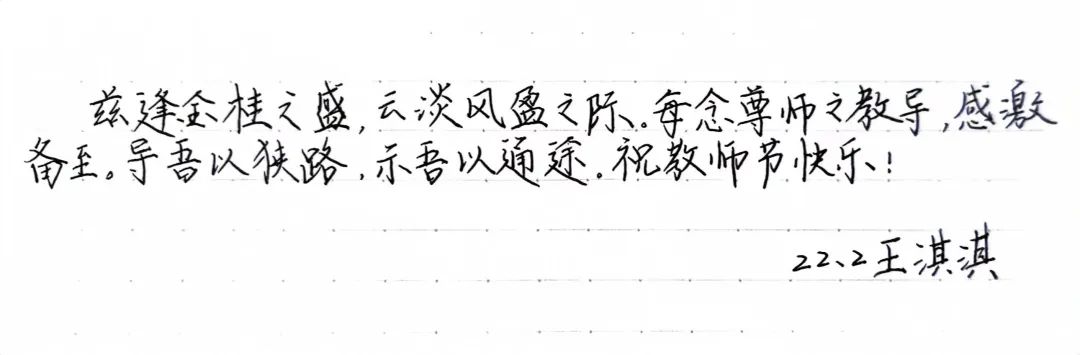 兹逢金桂之盛,云淡风盈之际。每念尊师之教导,感激
备至。导吾以狭路,示吾以通途。祝教师节快乐!
22.2王淇淇